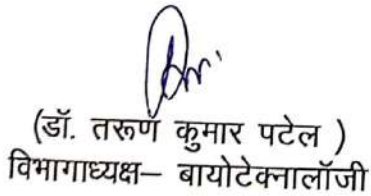 (डॉ. तरूण कुमार पटेल )
विभागाध्यक्ष– बायोटेक्नालॉजी